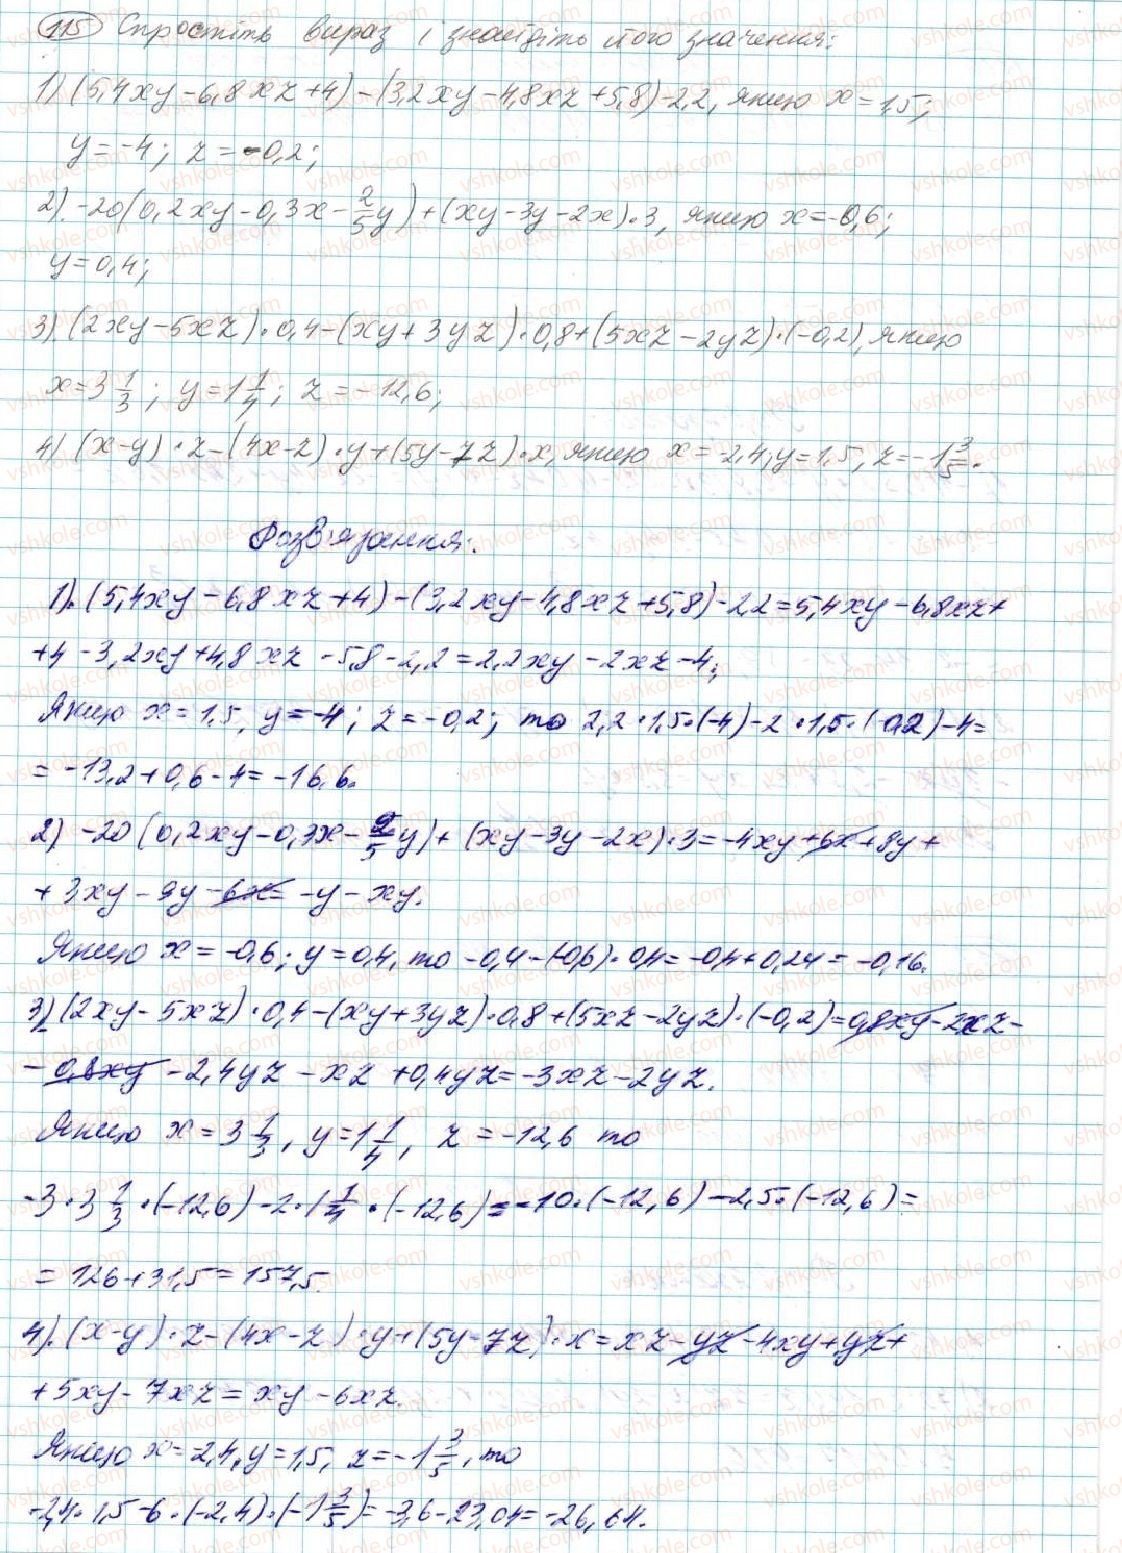 115 Спростіть вираз і знайдіть його значення:
1) (5,4xy-6,8xz+4)-(3,2xy-4,8xz+5,8)-2,2, якщо x=1,5;
y=-4; z=-0,2;
2). -20(0,2xy-0,3x-2/5y)+(xy-3y-2x)·3, якщо x=-0,6;
y=0,4;
3) (2xy-5xz)·0,4-(xy+3yz)·0,8+(5xz-2yz)·(-0,2), якщо
x=3 1/3; y=1 1/4; z=-12,6;
4) (x-y)·z-(4x-z)·y+(5y-7z)·x, якщо x=-2,4, y=1,5, z=-1 3/5.
Розв'язання:
1). (5,4xy-6,8xz+4)-(3,2xy-4,8xz+5,8)-2,2=5,4xy-6,8xz+
+4-3,2xy+4,8xz-5,8-2,2=2,2xy-2xz-4;
Якщо x=1,5, y=-4; z=-0,2; то 2,2·1,5·(-4)-2·1,5·(-0,2)-4=
=-13,2+0,6-4=-16,6.
2) -20(0,2xy-0,3x-2/5y)+(xy-3y-2x)·3=-4xy+6x+8y+
+3xy-9y-6x=-y-xy.
Якщо x=-0,6; y=0,4, то -0,4-(-0,6)·0,4=-0,4+0,24=-0,16.
3) (2xy-5xz)·0,4-(xy+3yz)·0,8+(5xz-2yz)·(-0,2)=0,8xy-2xz-
-0,8xy-2,4yz-xz+0,4yz=-3xz-2yz.
Якщо x=3 1/3, y=1 1/4, z=-12,6 то
-3·3 1/3·(-12,6)-2·1 1/4·(-12,6)=-10·(-12,6)-2,5·(-12,6)=
=126+31,5=157,5.
4). (x-y)·z-(4x-z)·y+(5y-7z)·x=xz-yz-4xy+yz+
+5xy-7xz=xy-6xz.
Якщо x=-2,4, y=1,5, z=-1 3/5, то
-2,4·1,5-6·(-2,4)·(-1 3/5)=-3,6-23,04=-26,64.